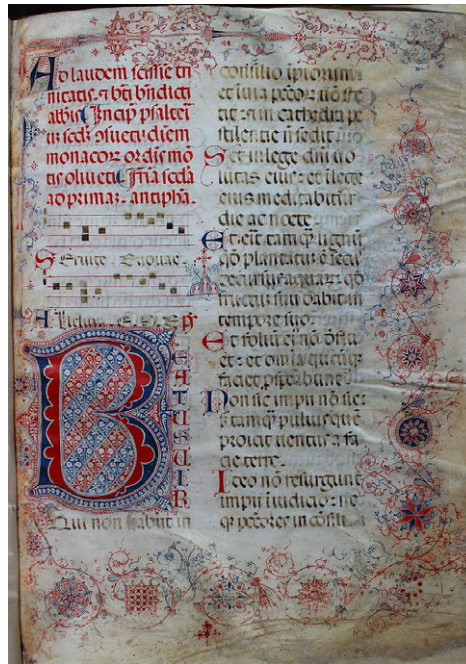 Ad laudem scissie tri
nitatis. ⁊ bti bndicti
abbis. Incip psalteri
um scdz ꝯsuetudiem
monacoꝝ ordis mō
tis oliueti. Feria scda
ad primaꝝ. antipha.
Seruite. Euouae.
Alleluia. E. v. o.
BEATUS UIR
Qui non habiit in
consilio ipiorum
et in uia pccoꝝ nō ste
tit: ⁊ in cathedra pe
stilentie n̄ sedit
Set in lege dnī uo
luntas eius: et i lege
eius meditabitur
die ac nocte.
Et erit tamqȝ lignū
qd̄ plantatū ē secus
decursus aquaꝝ: qd̄
fructū suū dabit in
tempore suo.
Et foliū ei nō defluet
et: et omīa quecūqȝ
faciet pspabunt
Non sic impii nō sic:
s tamqȝ puluis quē
proicit uentus a fa
cie terre.
Ideo nō resurgunt
impii i iudicio: ne
qȝ pccores in consilio